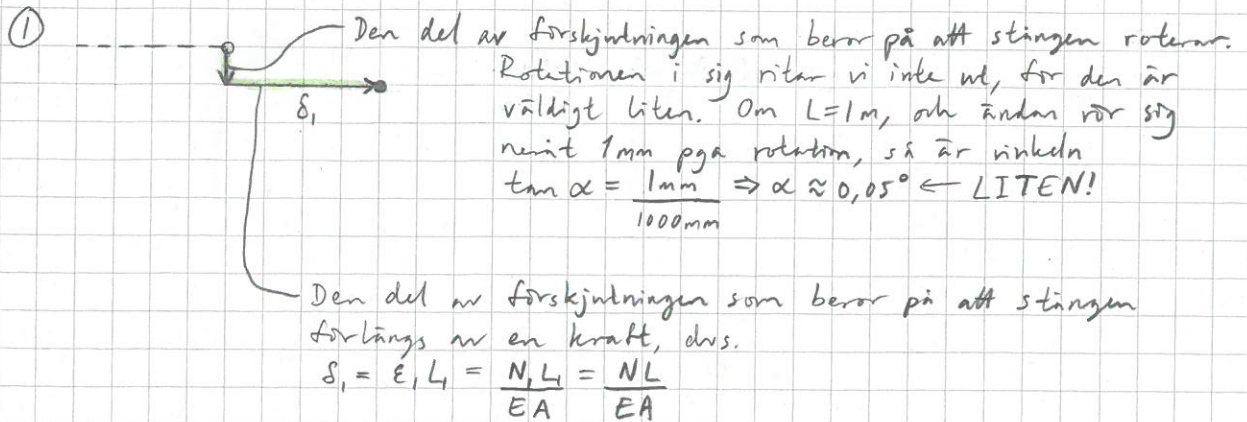 ①
Den del av förskjutningen som beror på att stången roterar.
Rotationen i sig ritar vi inte ut, för den är
väldigt liten. Om L=1m, och ändan rör sig
nedåt 1mm pga rotation, så är vinkeln
tan α = 1mm / 1000mm ⇒ α ≈ 0,05° ← LITEN!
δ₁
Den del av förskjutningen som beror på att stången
förlängs av en kraft, dvs.
δ₁ = ε₁ L₁ = N₁ L₁ / EA = NL / EA